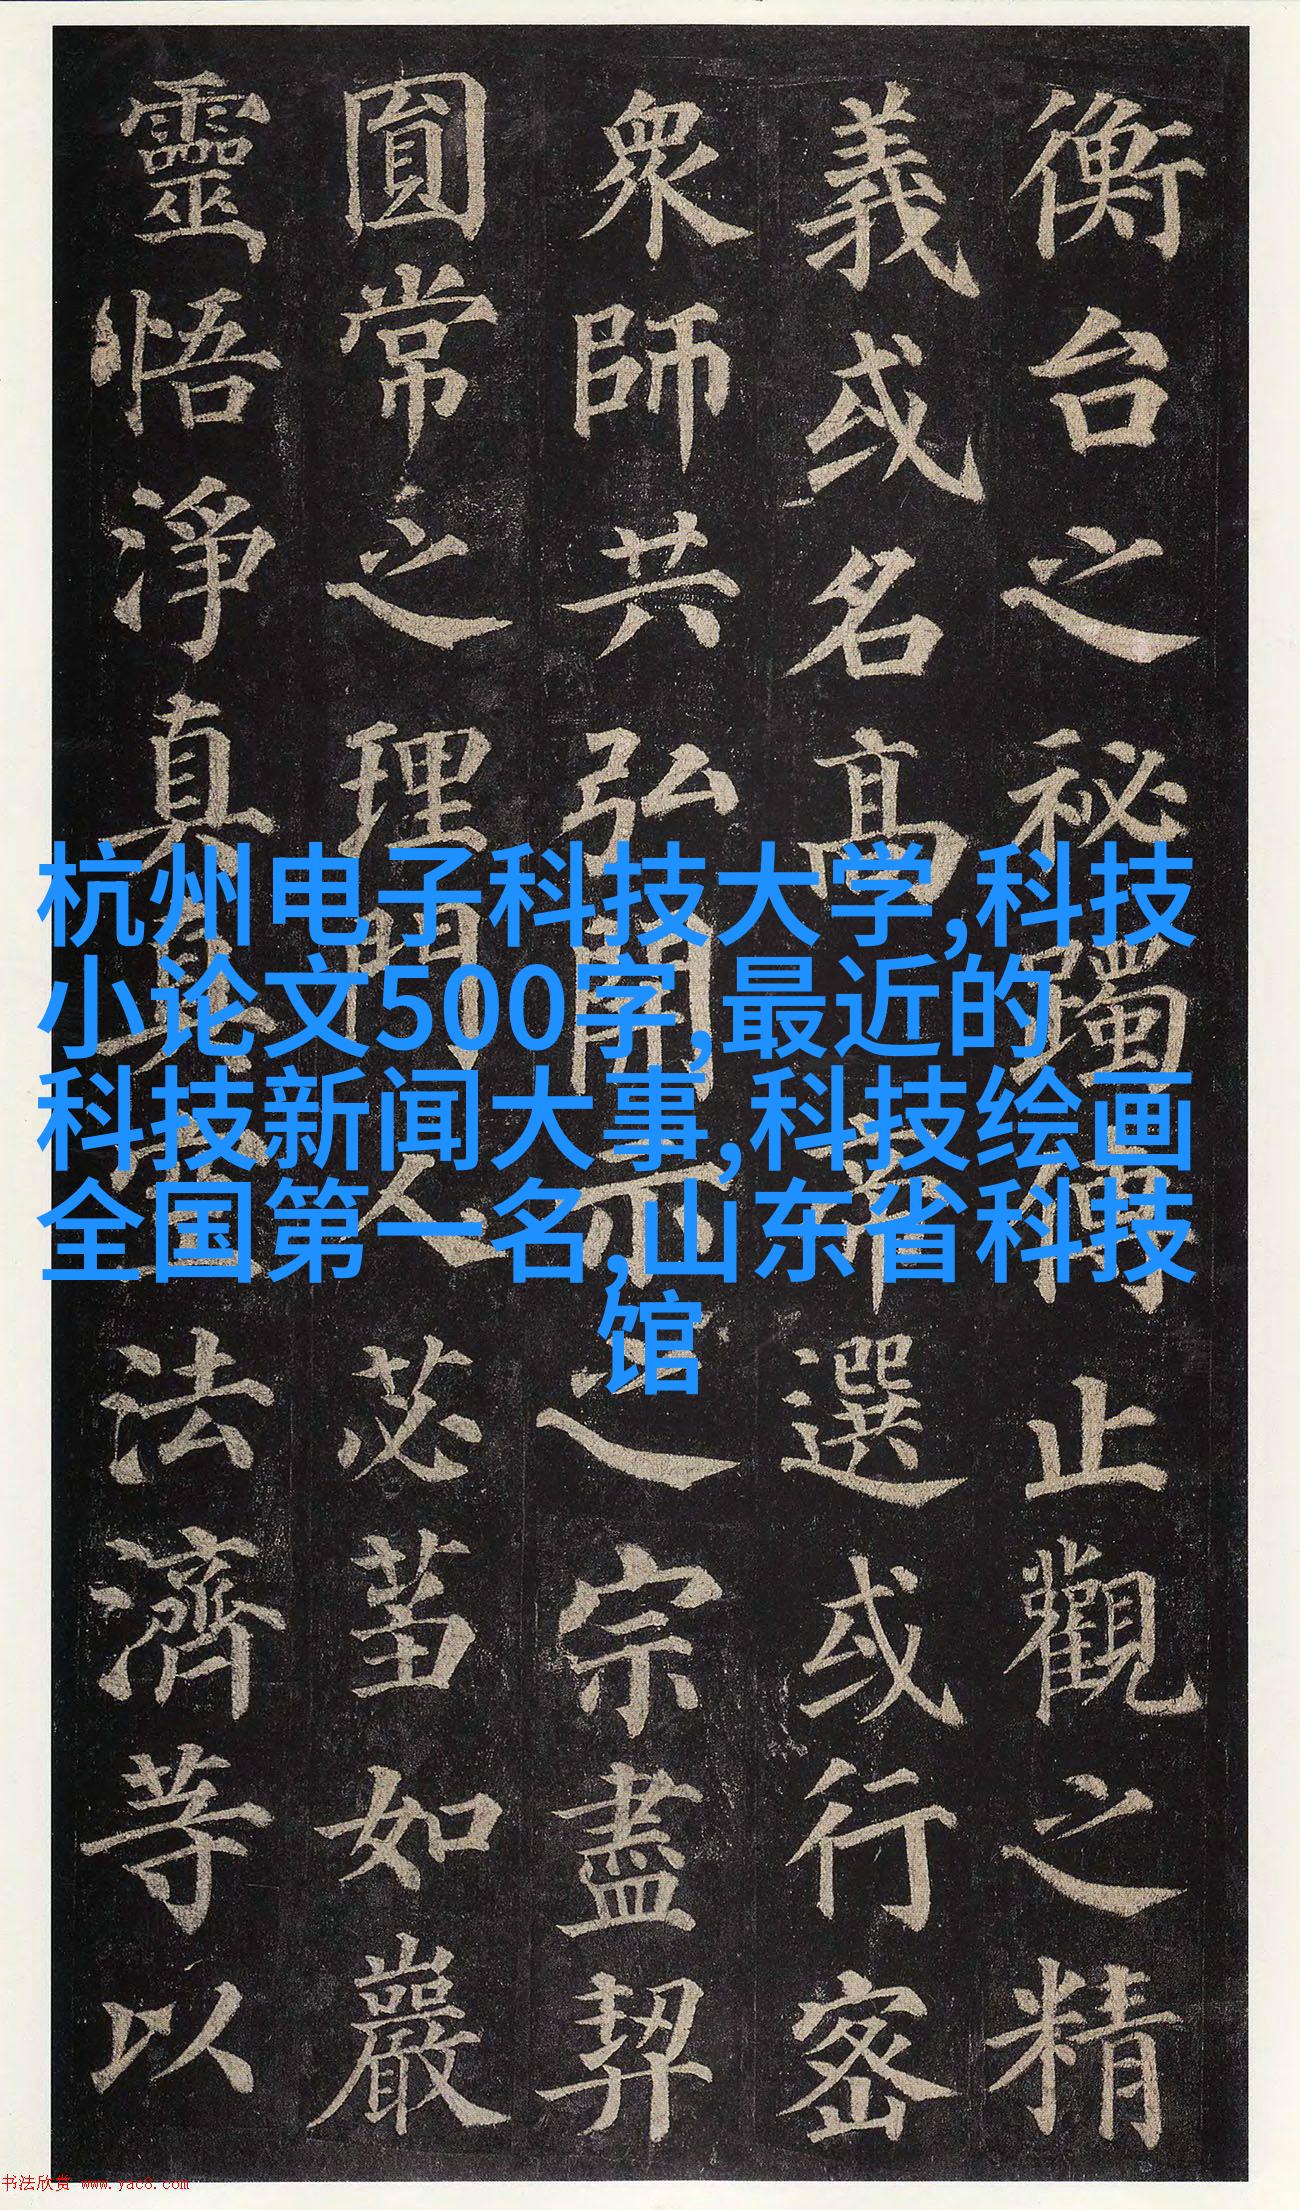 衡台之秘躅傳止觀之精
義或名高帝選或行密
衆師共弘開示之宗盡契
圎常之理門人苾蒭如巖
靈悟淨真真空法濟等以
杭州电子科技大学,科技
小论文500字,最近的
科技新闻大事,科技绘画
全国第一名,山东省科技
馆
书法欣赏 www.yac8.com